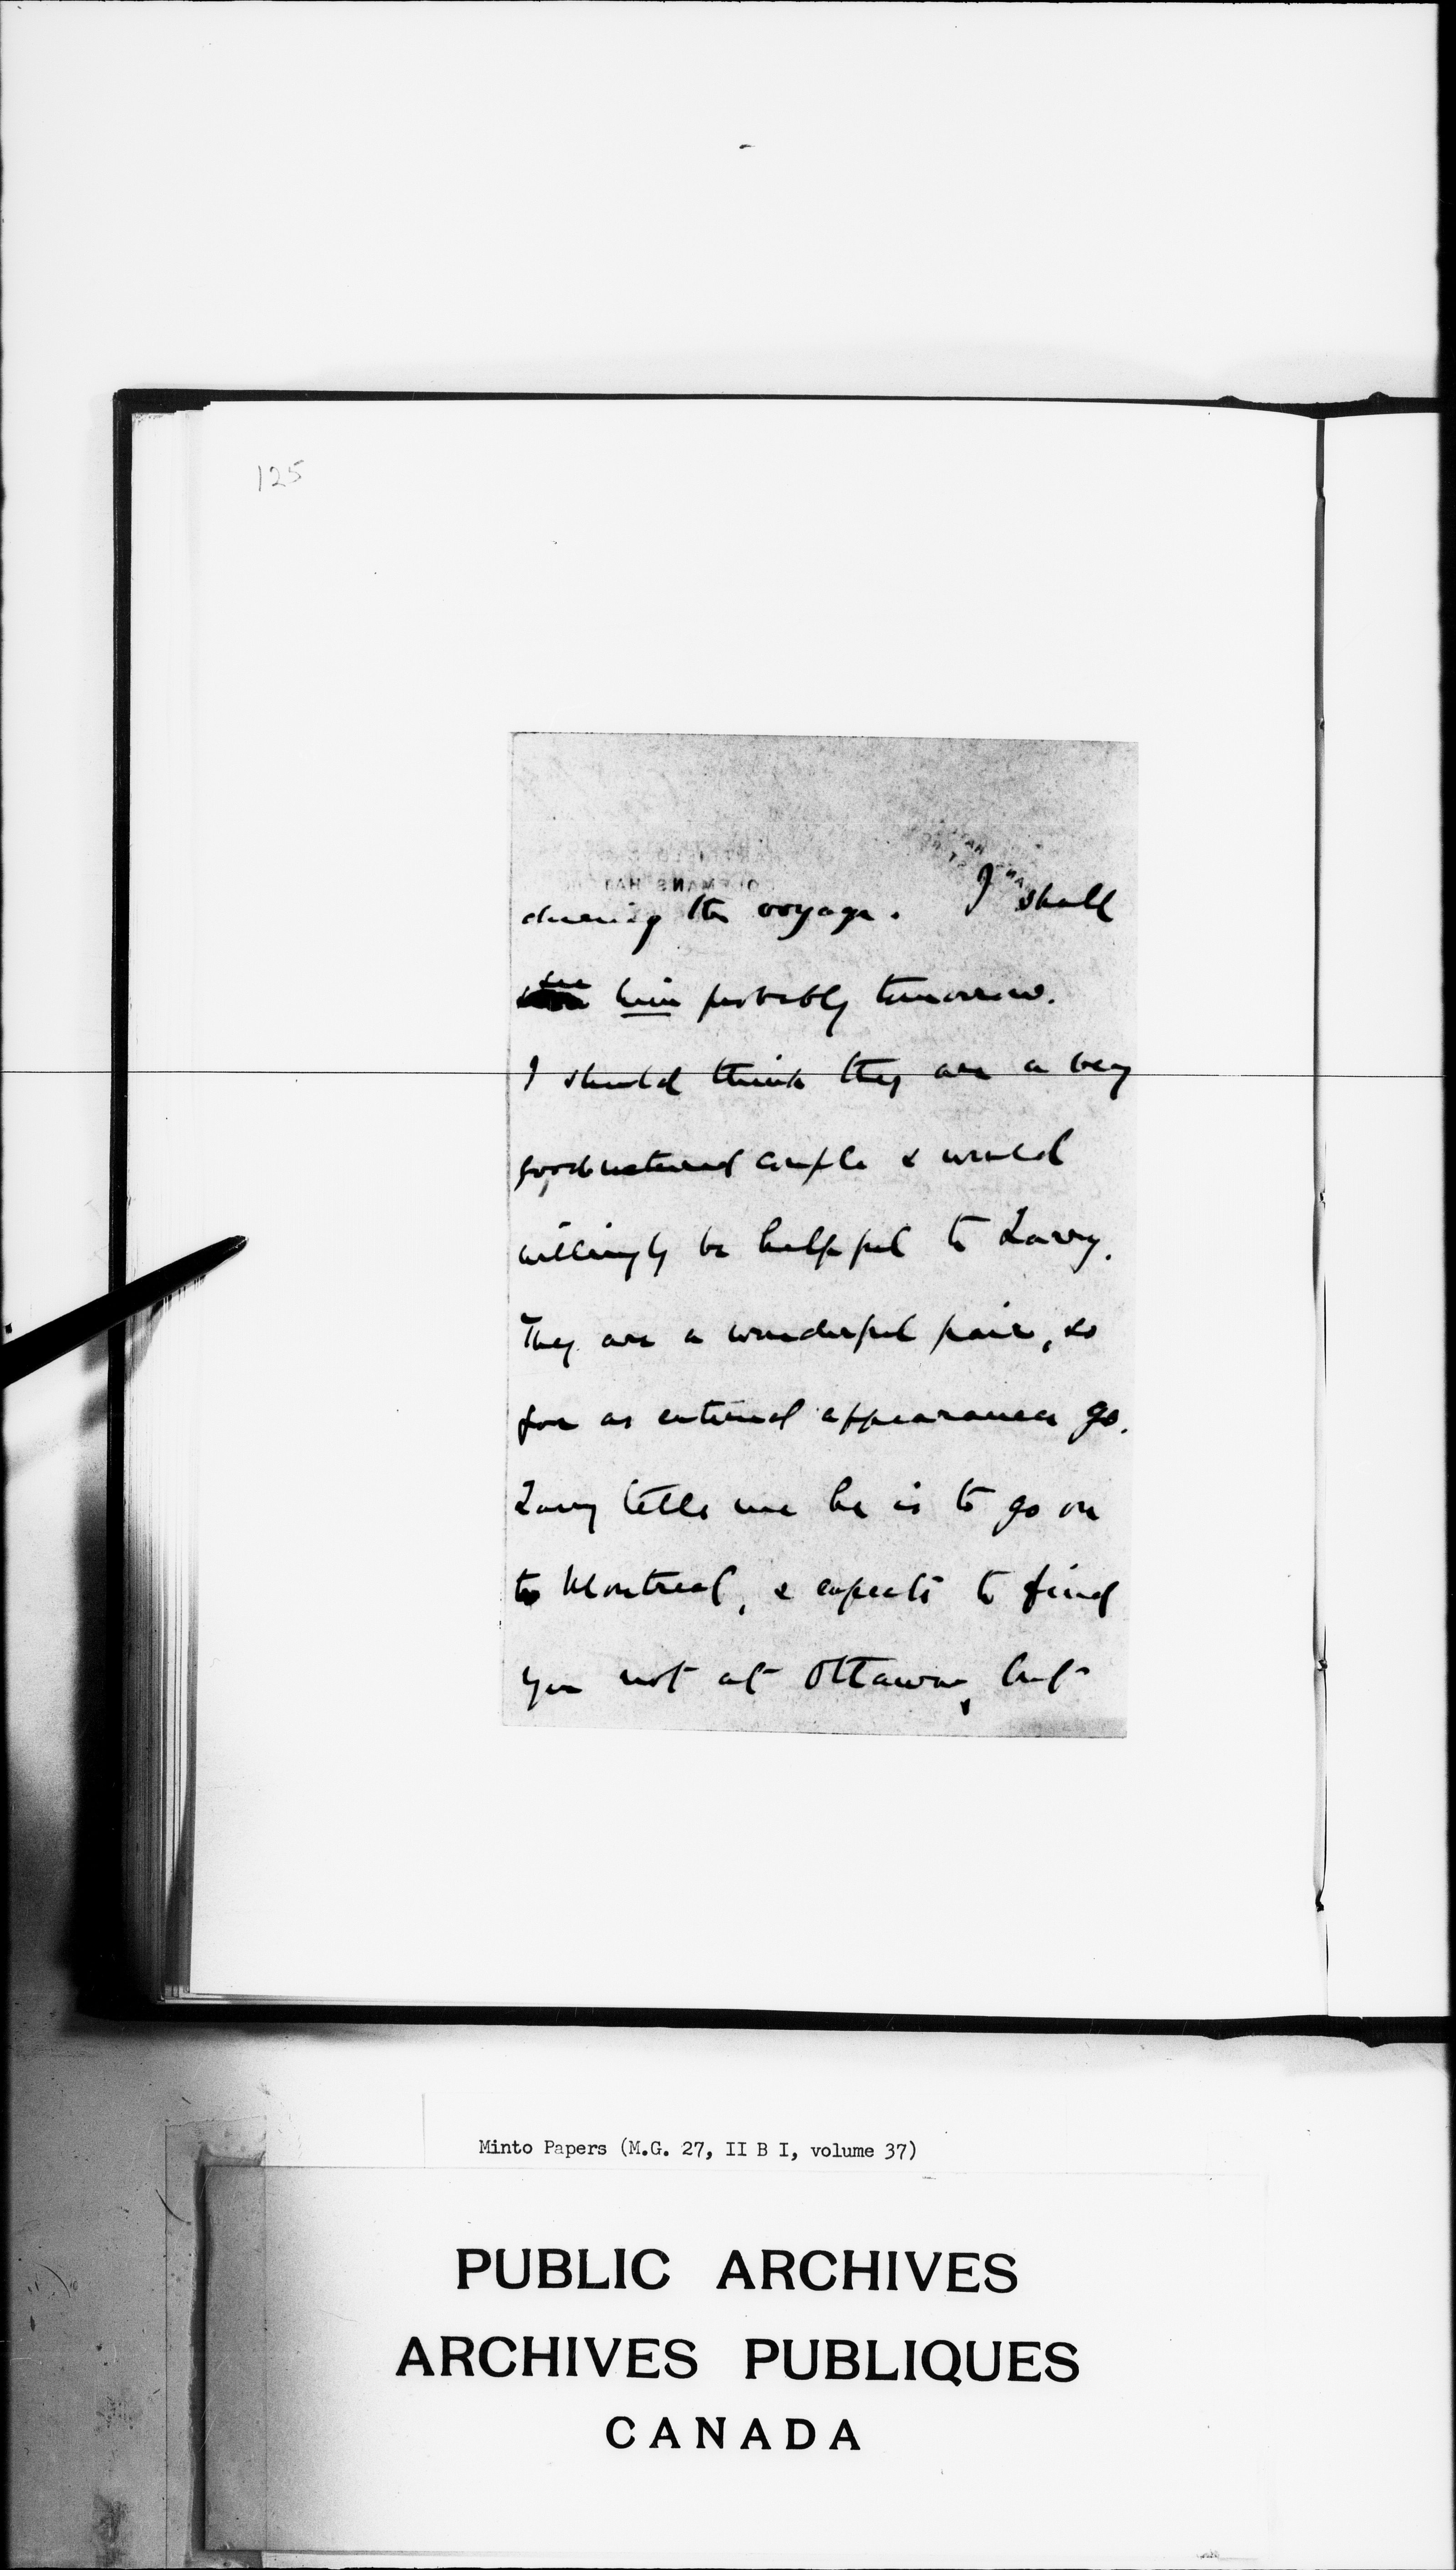 125
during the voyage. I shall
see him probably tomorrow.
I should think they are a very
goodnatured couple & would
willingly be helpful to Larry.
They are a wonderful pair, so
far as external appearances go.
Larry tells me he is to go on
to Montreal, & expects to find
you not at Ottawa, but
Minto Papers (M.G. 27, II B I, volume 37)
PUBLIC ARCHIVES
ARCHIVES PUBLIQUES
CANADA